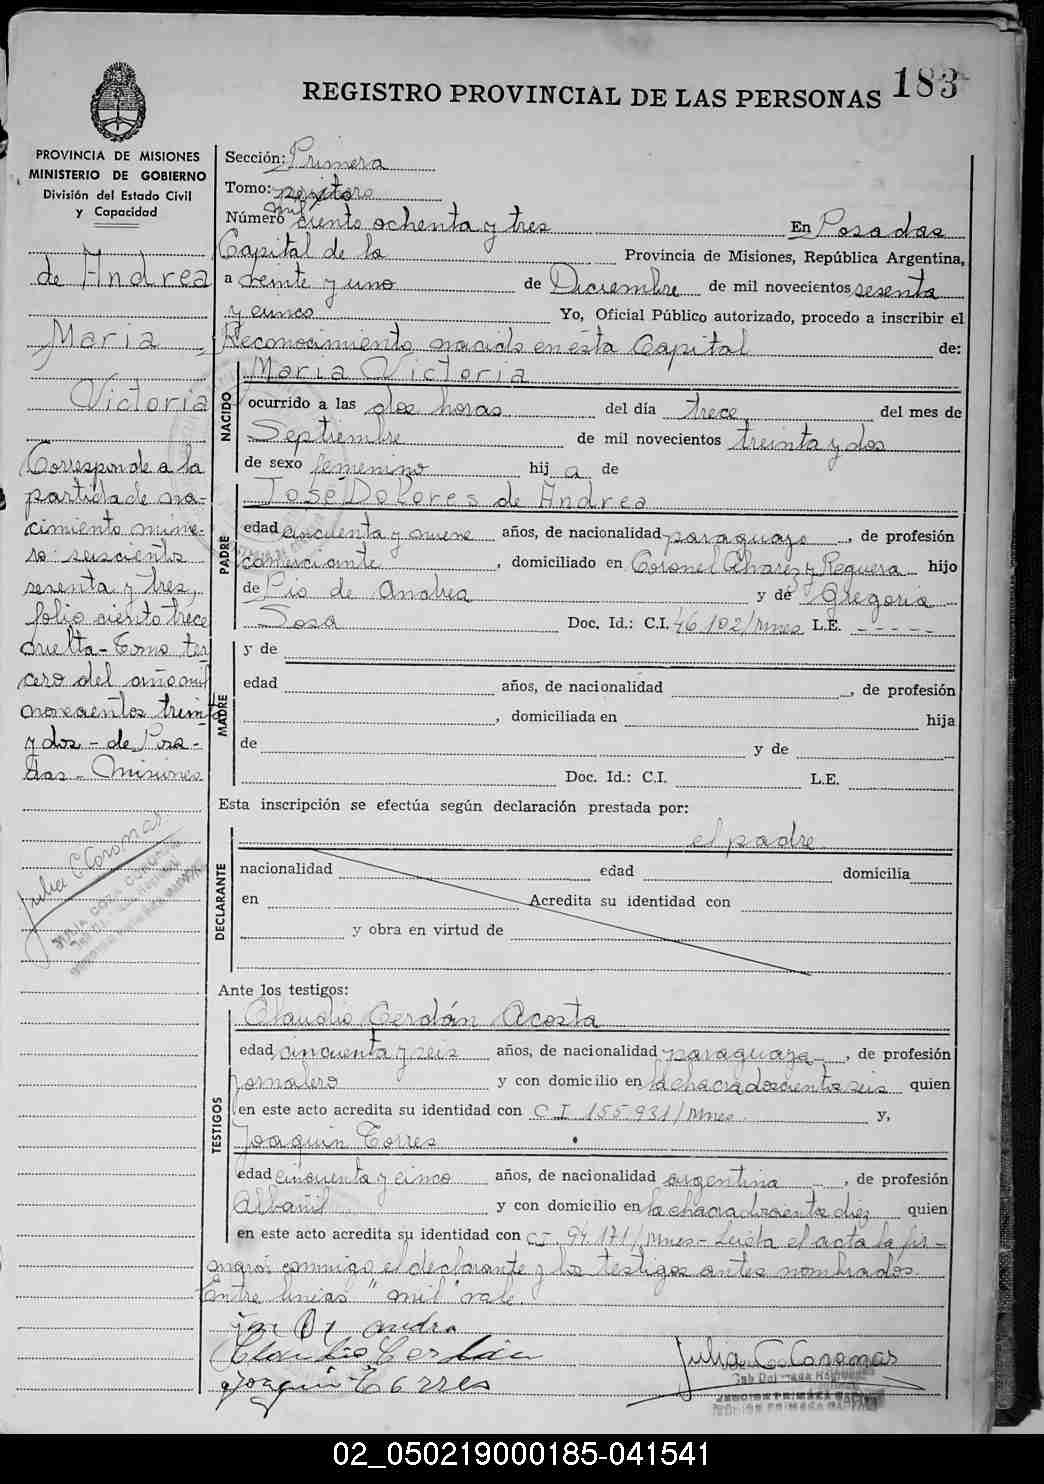 183
REGISTRO PROVINCIAL DE LAS PERSONAS
PROVINCIA DE MISIONES
MINISTERIO DE GOBIERNO
División del Estado Civil
y Capacidad
de Andrea
Maria
Victoria
Corresponde a la
partida de na-
cimiento núme-
ro seiscientos
sesenta y tres,
folio ciento trece
vuelta - Tomo ter
cero del año mil
novecientos treinta
y dos - de Posa-
das - Misiones
Julia C Coronas
Sección: Primera
Tomo:
mil
Número ciento ochenta y tres En Posadas
Capital de la Provincia de Misiones, República Argentina,
a veinte y uno de Diciembre de mil novecientos sesenta
y cinco Yo, Oficial Público autorizado, procedo a inscribir el
Reconocimiento nacida en esta Capital de:
NACIDO
Maria Victoria
ocurrido a las doce horas del día trece del mes de
Septiembre de mil novecientos treinta y dos
de sexo femenino hij a de
PADRE
José Dolores de Andrea
edad cincuenta y nueve años, de nacionalidad paraguayo, de profesión
comerciante, domiciliado en Coronel Alvarez y Reguera hijo
de Pio de Andrea y de Gregoria
Sosa Doc. Id.: C.I. 46.102/Mnes L.E. - - - - -
MADRE
y de
edad años, de nacionalidad , de profesión
, domiciliada en hija
de y de
Doc. Id.: C.I. L.E.
Esta inscripción se efectúa según declaración prestada por:
DECLARANTE
el padre
nacionalidad edad domicilia
en Acredita su identidad con
y obra en virtud de
Ante los testigos:
TESTIGOS
Claudio Cerdán Acosta
edad cincuenta y seis años, de nacionalidad paraguaya, de profesión
Jornalero y con domicilio en la chacra doscientos seis quien
en este acto acredita su identidad con C I 155.931/Mnes. y,
Joaquin Torres
edad cincuenta y cinco años, de nacionalidad argentina, de profesión
Albañil y con domicilio en la chacra doscientos diez quien
en este acto acredita su identidad con C I. 94.171/Mnes - Leída el acta la fir-
maron conmigo el declarante y los testigos antes nombrados.
Entre lineas "mil" vale.
Claudio Cerdán
Joaquin Torres
Julia C Coronas
02_050219000185-041541